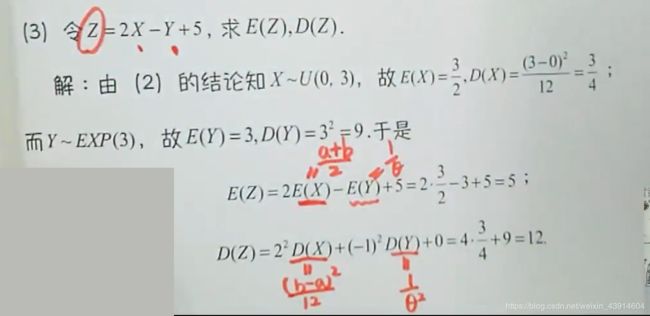 (3) 令 Z=2X−Y+5, 求 E(Z),D(Z).
解：由 (2) 的结论知 X~U(0, 3), 故 E(X)=3/2, D(X)=(3−0)²/12=3/4；
而 Y~EXP(3), 故 E(Y)=3, D(Y)=3²=9.于是
a+b/2 1/θ
E(Z)=2E(X)−E(Y)+5=2·3/2−3+5=5；
D(Z)=2²D(X)+(−1)²D(Y)+0=4·3/4+9=12.
(b-a)²/12 1/θ²
https://blog.csdn.net/weixin_43914604